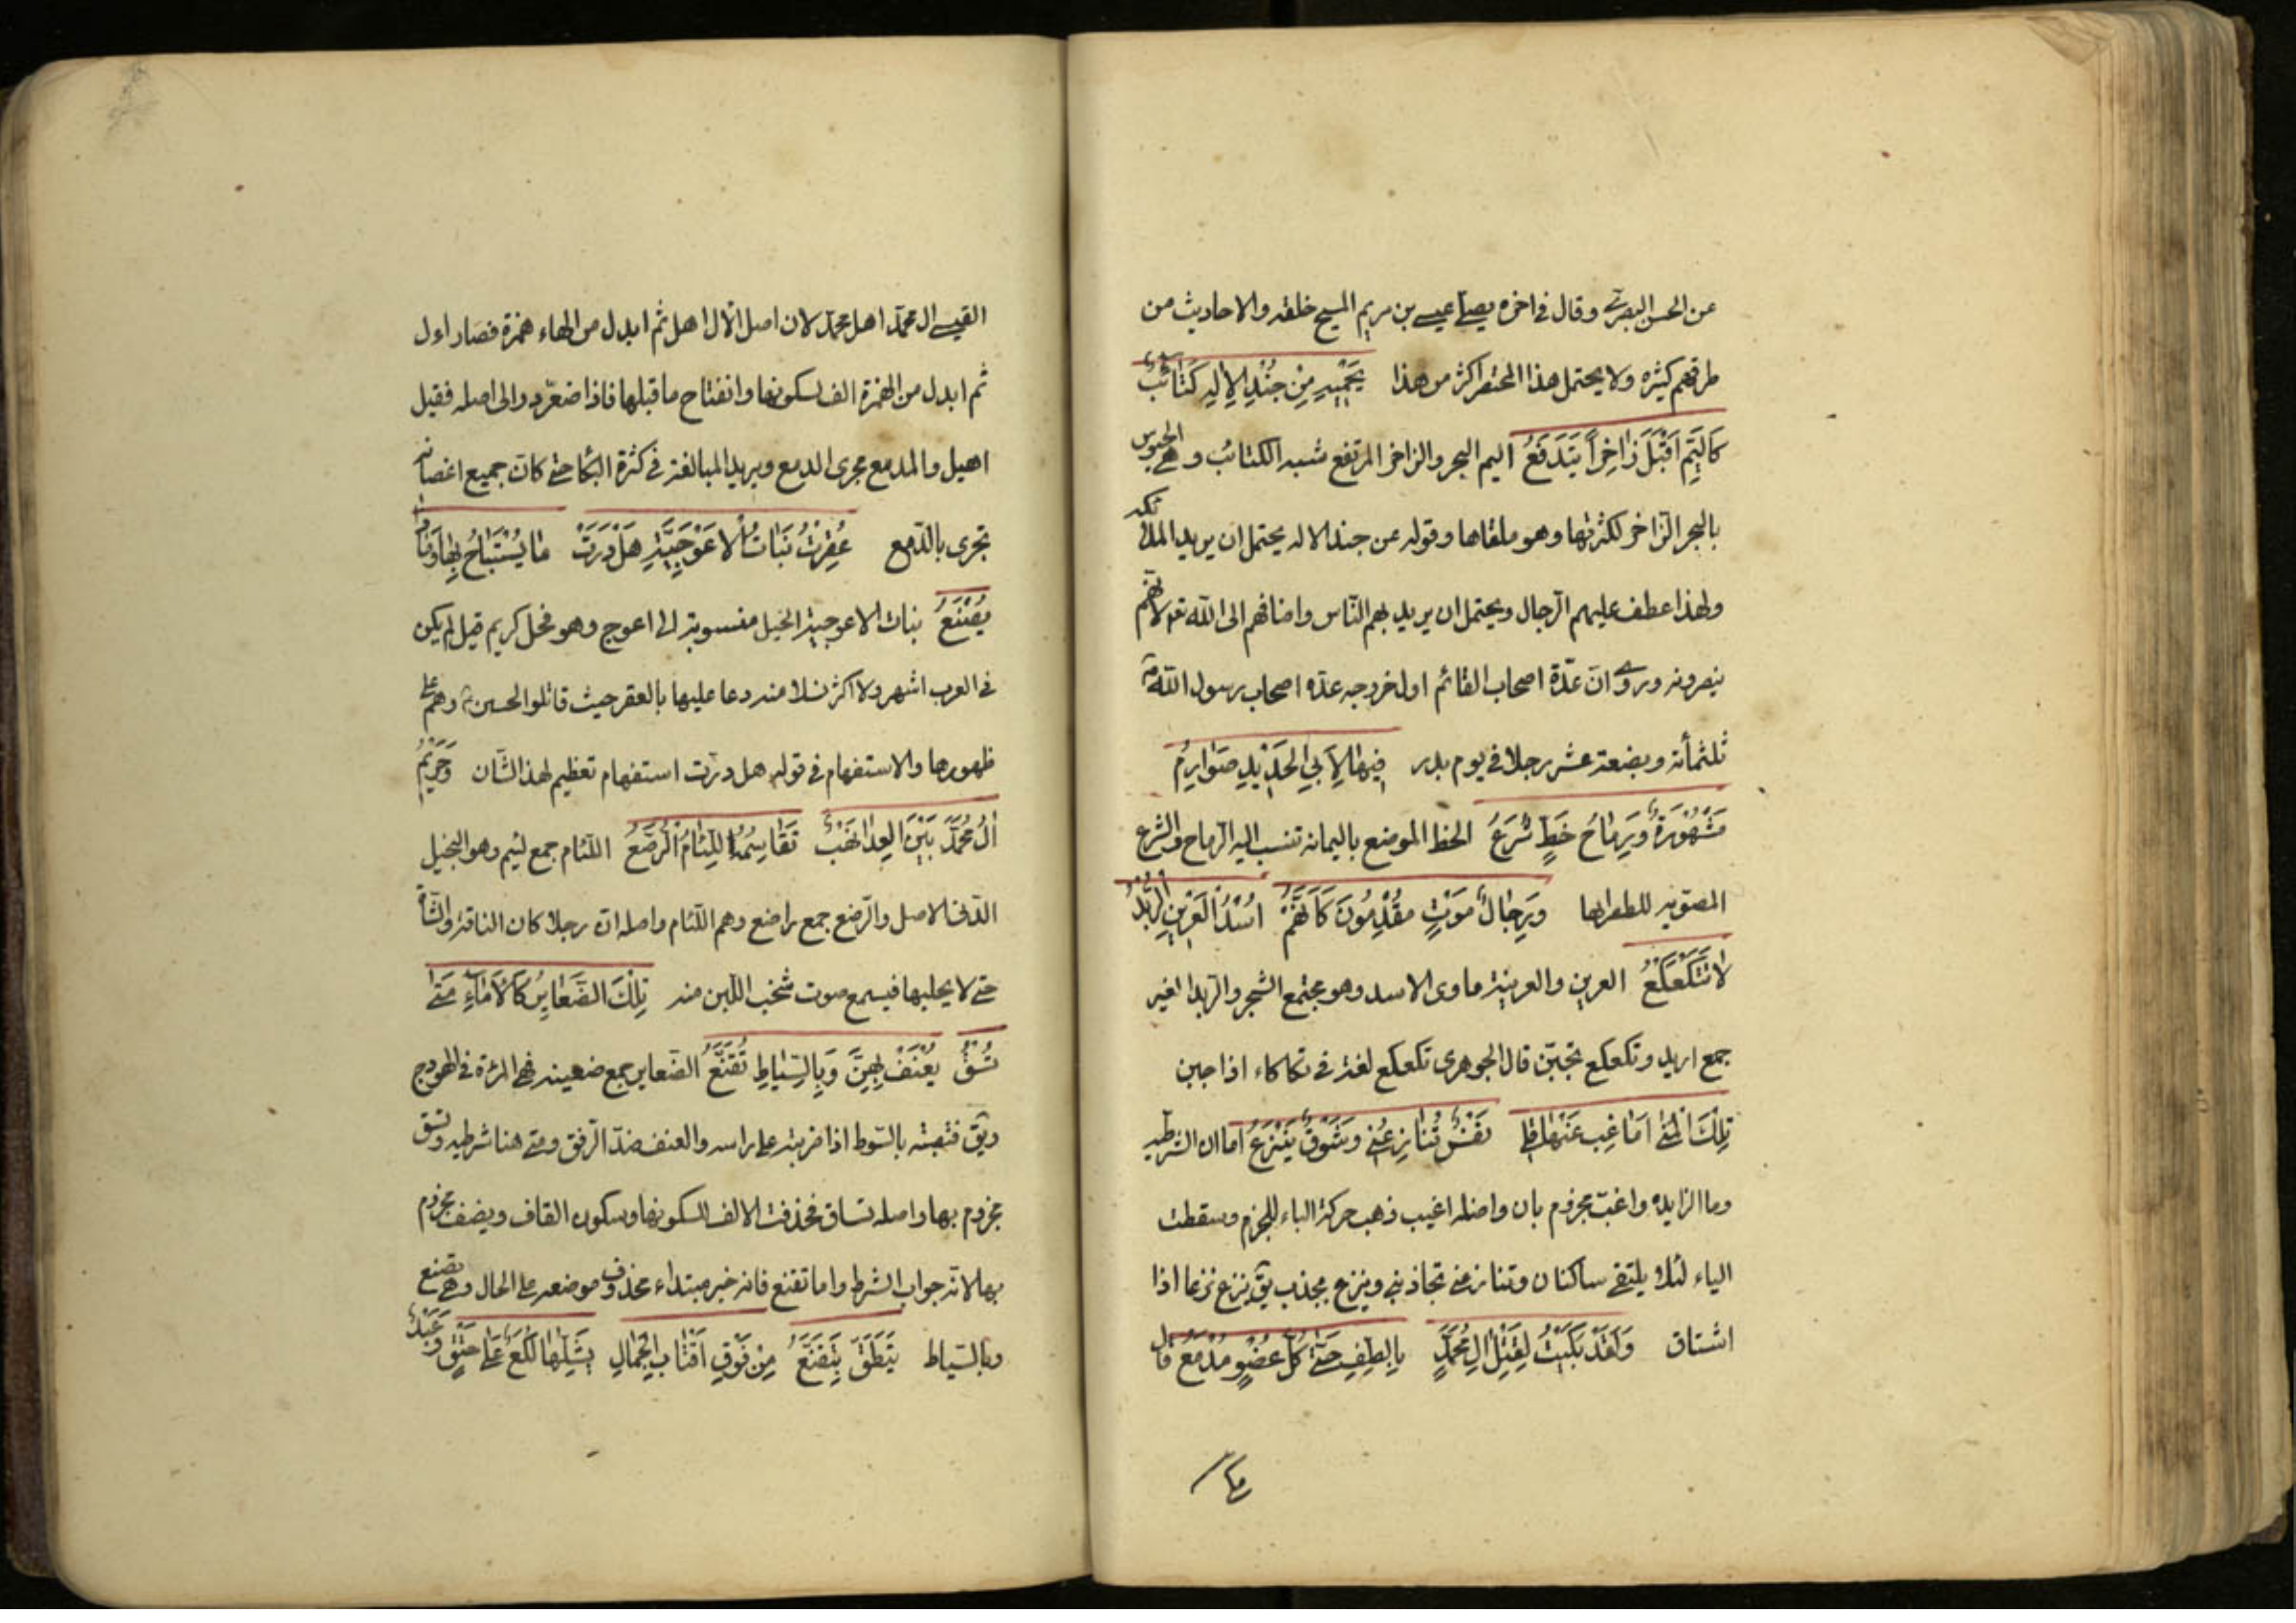 عن الحسن البصري وقال في اخره يصلي عيسى بن مريم المسيح خلفه والاحاديث من
طرقهم كثيره ولا يحتمل هذا المختصر اكثر من هذا يَحْمِيهِ مِنْ جُنْدِ الاِلهِ كَتَائِبٌ
كَالْيَمِّ اَقْبَلَ زَاخِراً يَتَدَفَّعُ اليم البحر والزاخر المرتفع شبه الكتائب وهي الجيوش
بالبحر الزاخر لكثرتها وهو ملقاها وقوله من جند الاله يحتمل ان يريد الملائكه
ولهذا عطف عليهم الرجال ويحتمل ان يريد بهم الناس واضافهم الى الله تع لانهم
ينصرونه وروي ان عدّة اصحاب القائم اول خروجه عده اصحاب رسول الله ص
ثلثمأئة وبضعة عشر رجلا في يوم بدر فِيهَا لِآلِ اَبِي الحَدِيدِ صَوَارِمٌ
مَشْهُورَةٌ وَرِمَاحُ خَطٍّ شُرَّعُ الخط الموضع باليمامه تنسب اليه الرماح والشرع
المصوبه للطعن بها وَرِجَالُ مَوْتٍ مُقْدِمُونَ كَاَنَّهُمْ اُسْدُ الْعَرِينِ الرُّبْدُ
لَا تَتَكَعْكَعُ العرين والعرينة ماوى الاسد وهو مجتمع الشجر والربد اغبر
جمع اربد وتكعكع تجبّن قال الجوهري تكعكع لغة في تكاكاء اذا جبن
تِلْكَ الْمُنَى اَمَّا غِبْ عَنْهَا فَلِي نَفْسٌ تُنَازِعُنِي وَشَوْقٌ يَنْزِعُ اما ان الشرطيه
وما الزايده واغب مجزوم بان واصله اغيب ذهب حركة الباء للجزم وسقطت
الياء لئلا يلتقي ساكنان وتنازعني تجاذبني وينزع يجذب يق ينزع نزعا اذا
اشتاق وَلَقَدْ بَكَيْتُ لِقَتْلِ الِ مُحَمَّدٍ بِالطَّفِّ حَتَّى كُلُّ عُضْوٍ مَدْمَعُ قال
القيسي ال محمد اهل محمد لان اصل الآل اهل ثم ابدل من الهاء همزة فصار اءل
ثم ابدل من الهمزة الف لسكونها وانفتاح ما قبلها فاذا صغّر رد الى اصله فقيل
اهيل والمدمع مجرى الدمع ويريد المبالغة في كثرة البكا حتى كان جميع اعضائه
تجرى بالدمع عُقِرَتْ بَنَاتُ الْاَعْوَجِيَّةِ هَلْ دَرَتْ مَا يُسْتَبَاحُ بِهَا وَمَاذَا
يُصْنَعُ بنات الاعوجية الخيل منسوبة الى اعوج وهو فحل كريم قيل لم يكن
في العرب اشهر ولا اكثر نسلا منه دعا عليها بالعقر حيث قاتلوا الحسين ع وهم على
ظهورها والاستفهام في قوله هل درت استفهام تعظيم لهذا الشأن وَحَرِيمُ
الِ مُحَمَّدٍ بَيْنَ الْعِدَا نَهْبٌ تَقَاسَمُهُ اللِّئَامُ الرُّضَّعُ اللئام جمع لئيم وهو البخيل
الدنى الاصل والرضع جمع راضع وهم اللئام واصله ان رجلا كان الناقة والشاة
حتى لا يحلبها فيسمع صوت شخب اللبن منه تِلْكَ الضَّعَايِنُ كَالْاِمَاءِ مَتَى
تُسَقْ يُعْنَفْ بِهِنَّ وَبِالسِّيَاطِ تُقَنَّعُ الضعاين جمع ضعينه فهي المرئة في الهودج
ويق قنعته بالسوط اذا ضربته على راسه والعنف ضد الرفق ومتى هنا شرطيه وتسق
مجزوم بها واصله تساق فحذفت الالف لسكونها وسكون القاف ويعنف مجزوم
بها لانه جواب الشرط واما تقنع فانه خبر مبتداء محذوف موضعه على الحال وهي تقنع
وبالسياط مِنْ فَوْقِ اَقْتَابِ الْجِمَالِ يَشُلُّهَا لُكَعٌ عَلَى حَنَقٍ وَعَبْدٌ